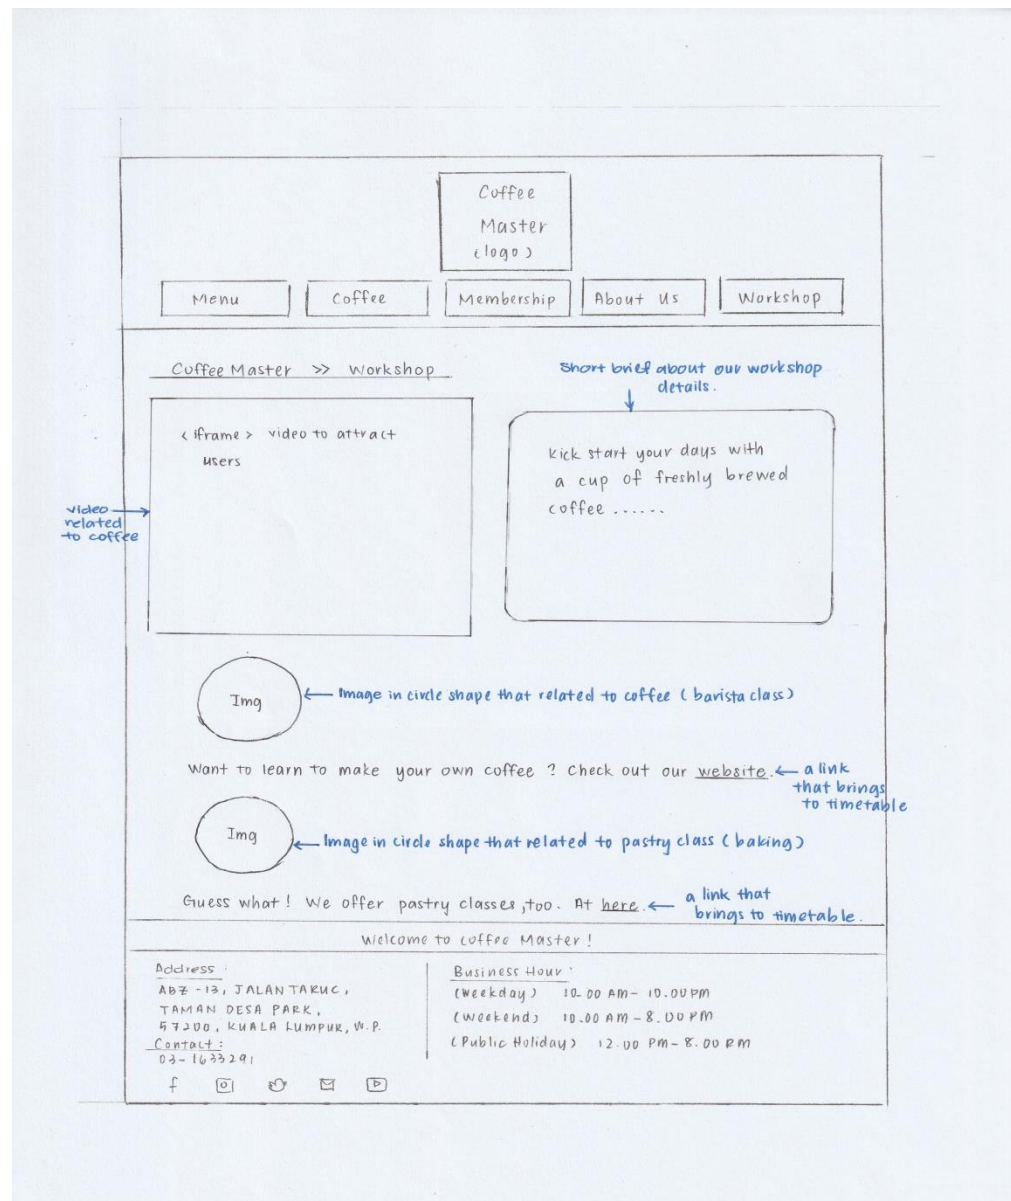 Coffee
Master
(logo)
Menu
Coffee
Membership
About Us
Workshop
Coffee Master >> Workshop
Short brief about our workshop
details.
<iframe> video to attract
users
Kick start your days with
a cup of freshly brewed
coffee ......
video
related
to coffee
Img
Image in circle shape that related to coffee (barista class)
Want to learn to make your own coffee ? Check out our website.
a link
that brings
to timetable
Img
Image in circle shape that related to pastry class (baking)
Guess what! We offer pastry classes, too. At here.
a link that
brings to timetable.
Welcome to Coffee Master!
Address :
ABZ-13, JALAN TARUC,
TAMAN DESA PARK,
57200, KUALA LUMPUR, W.P.
Contact :
03-1633291
Business Hour :
(Weekday) 10.00 AM - 10.00 PM
(Weekend) 10.00 AM - 8.00 PM
(Public Holiday) 12.00 PM - 8.00 PM